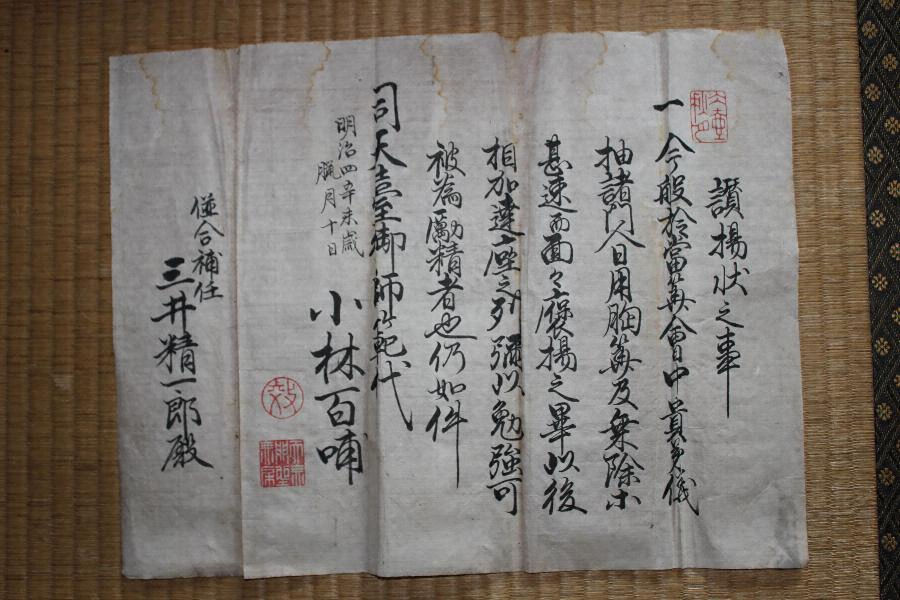 讃揚状之事
一今般於當算會中貴美儀
抽諸門人日用胸算及乗除ホ
甚速而面々褒揚之畢以後
相加達座之列彌以勉強可
被為勵精者也仍如件
司天壹室御師範代
明治四辛未歳
臘月十日
小林百哺
僅合補任
三井精一郎殿